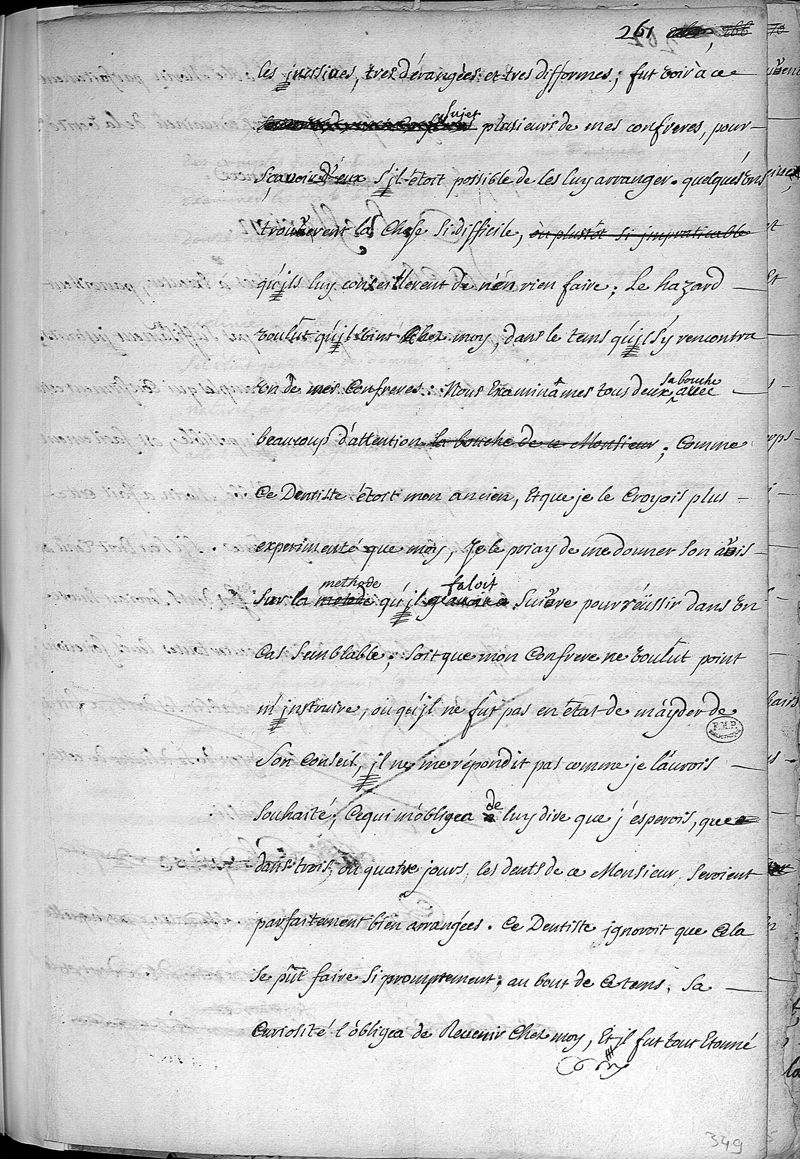 261
les jncisives, tres dérangées et tres difformes; fut voir à ce
sujet plusieurs de mes confreres, pour
sçavoir d'eux s'jl étoit possible de les luy arranger. quelques uns
trouverent la chose si difficile, ou plustôt si jmpraticable
qu'jls luy conseillerent de n'en rien faire; Le hazard
voulut qu'jl vint chez moy, dans le tems qu'jl s'y rencontra
un de mes Confreres: Nous Examinâmes tous deux sa bouche avec
beaucoup d'attention la bouche de ce Monsieur; Comme
Ce Dentiste étoit mon ancien, Et que je le Croyois plus
experimenté que moy, Je le priay de me donner son avis
sur la metode methode qu'jl faloit suivre pour réüssir dans un
cas semblable; soit que mon Confrere ne voulut point
m'jnstruire, ou qu'jl ne fût pas en état de m'ayder de
son Conseil, jl ne me répondit pas comme je l'aurois
souhaité; Ce qui m'obligea de luy dire que j'esperois, que
dans trois, ou quatre jours, les dents de ce Monsieur, seroient
parfaitement bien arrangées. Ce Dentiste jgnoroit que cela
se pût faire si promptement; au bout de ce tems, sa
Curiosité l'obligea de Revenir Chez moy, Et jl fut tout Etonné
349